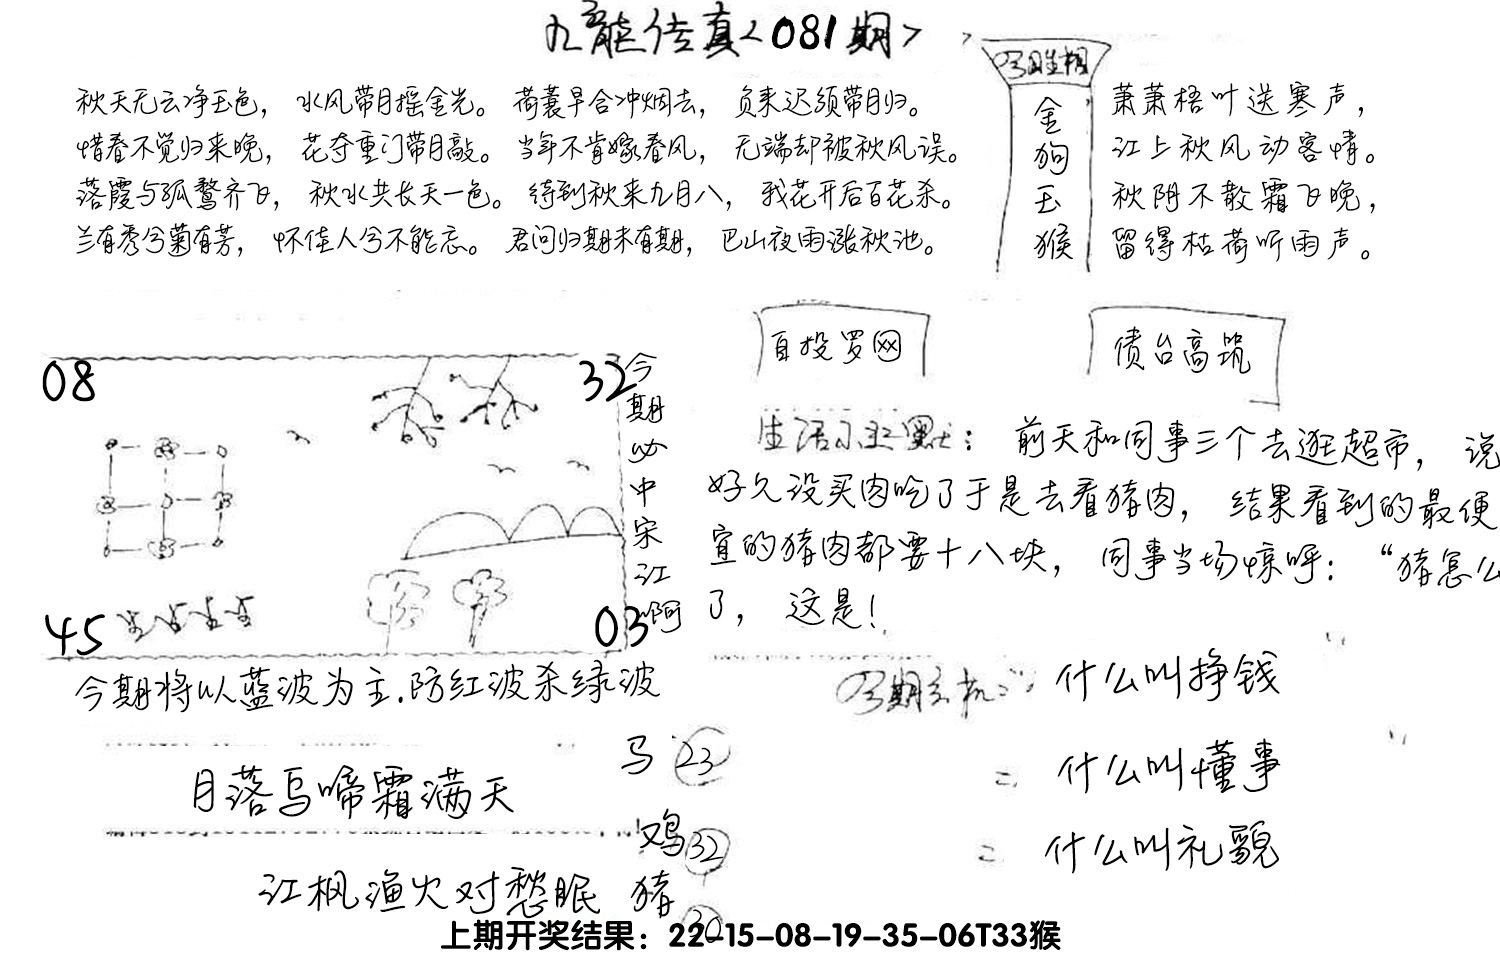 九龙传真<081期>
秋天无云净玉色，水风带月摇金光。荷蓑早合冲烟去，负耒迟须带月归。
惜春不觉归来晚，花夺重门带月敲。当年不肯嫁春风，无端却被秋风误。
落霞与孤鹜齐飞，秋水共长天一色。待到秋来九月八，我花开后百花杀。
兰有秀兮菊有芳，怀佳人兮不能忘。君问归期未有期，巴山夜雨涨秋池。
金狗玉猴
萧萧梧叶送寒声，
江上秋风动客情。
秋阴不散霜飞晚，
留得枯荷听雨声。
自投罗网
债台高筑
08
32
45
03
今期必中宋江啊
生活小幽默：前天和同事三个去逛超市，说
好久没买肉吃了于是去看猪肉，结果看到的最便
宜的猪肉都要十八块，同事当场惊呼：“猪怎么
了，这是！
今期将以蓝波为主.防红波杀绿波
今期玄机：什么叫挣钱
= 什么叫懂事
= 什么叫礼貌
月落乌啼霜满天
江枫渔火对愁眠
马 23
鸡 32
猪 30
上期开奖结果：22-15-08-19-35-06T33猴